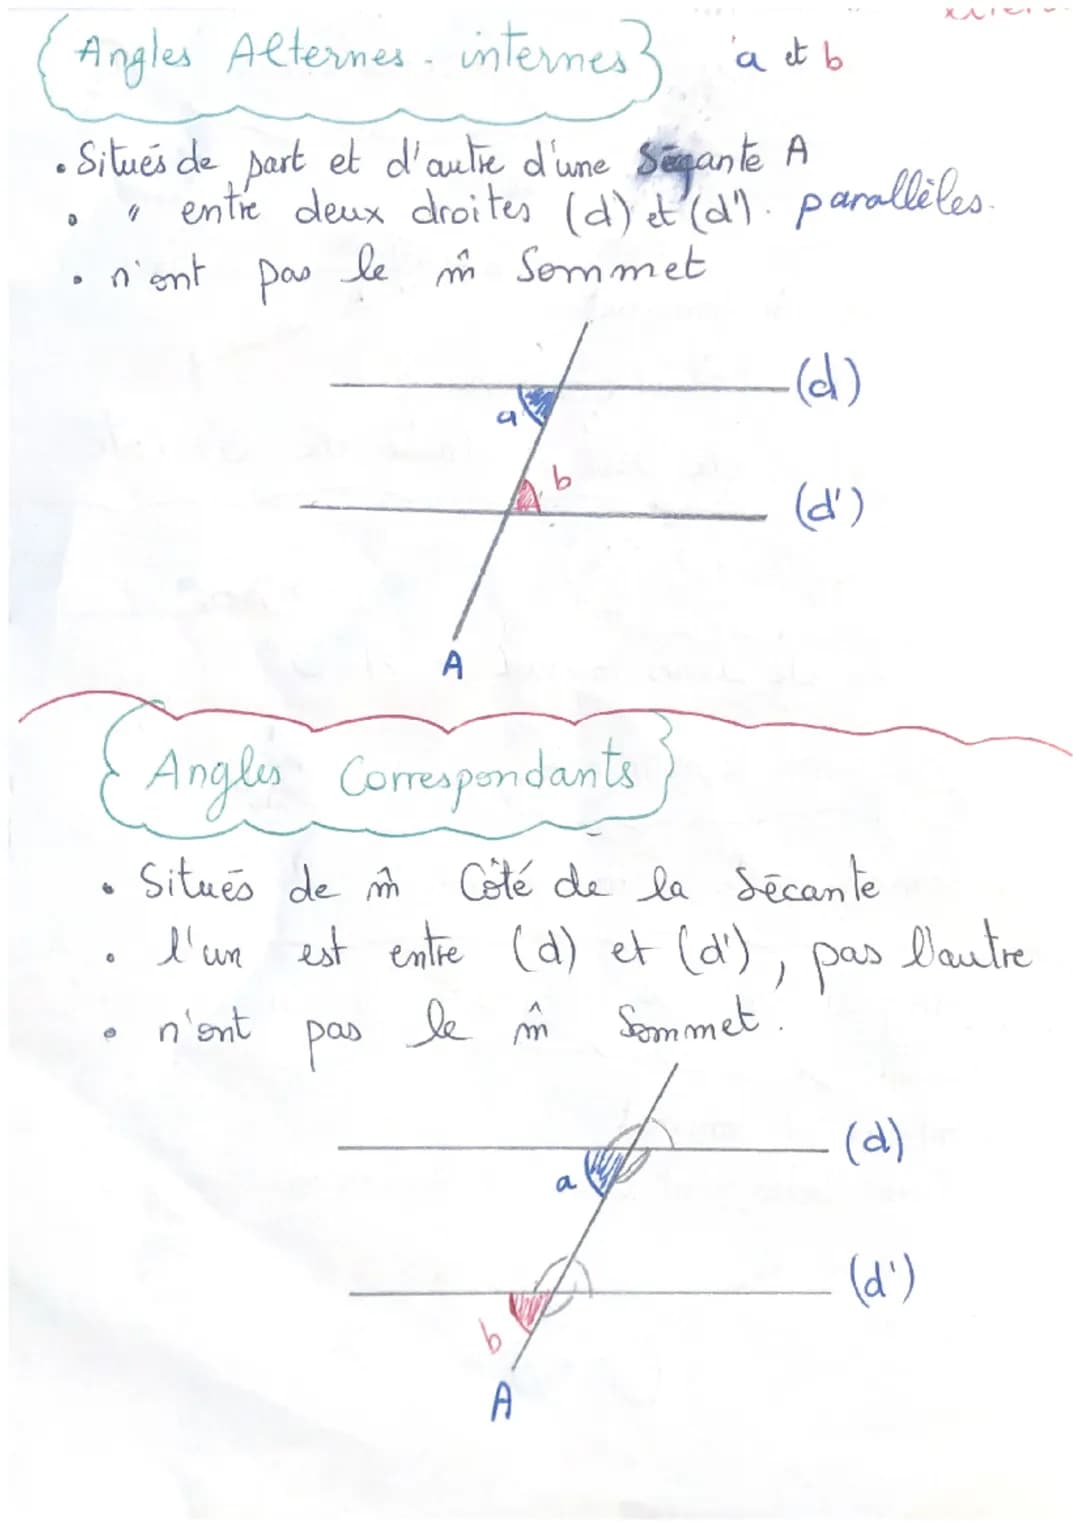 Angles Alternes - internes a et b
• Situés de part et d'autre d'une Sécante A
• " entre deux droites (d) et (d'). parallèles.
• n'ont pas le m̂ Sommet
(d)
a
b
(d')
A
Angles Correspondants
• Situés de m̂ Côté de la Sécante
• l'un est entre (d) et (d'), pas l'autre
• n'ont pas le m̂ Sommet.
(d)
a
(d')
b
A